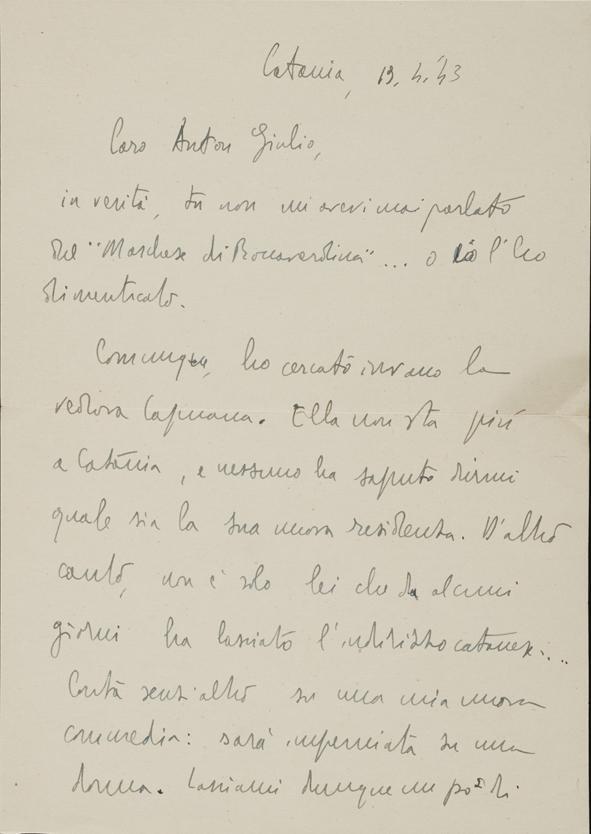 Catania, 19.4.'43
Caro Anton Giulio,
in verità, tu non mi avevi mai parlato
del "Marchese di Roccaverdina"... o io l'ho
dimenticato.
Comunque, ho cercato invano la
vedova Capuana. Ella non sta più
a Catania, e nessuno ha saputo dirmi
quale sia la sua nuova residenza. D'altro
canto, non è solo lei che da alcuni
giorni ha lasciato l'indirizzo catanese...
Conta senz'altro su una mia nuova
commedia: sarà imperniata su una
donna. Lasciami dunque un po' di